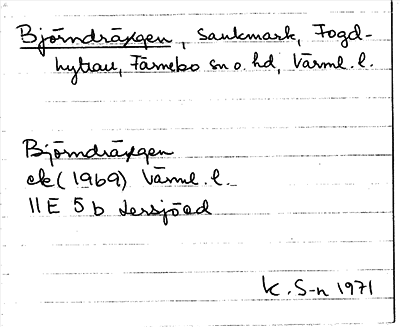 Björndräxgen, sankmark, Fogd-
hyttan, Färnebo sn o. hd, Värml. l.
Björndräxgen
ek (1969) Värml. l.
11E 5b Lersjöed
K. S-n 1971